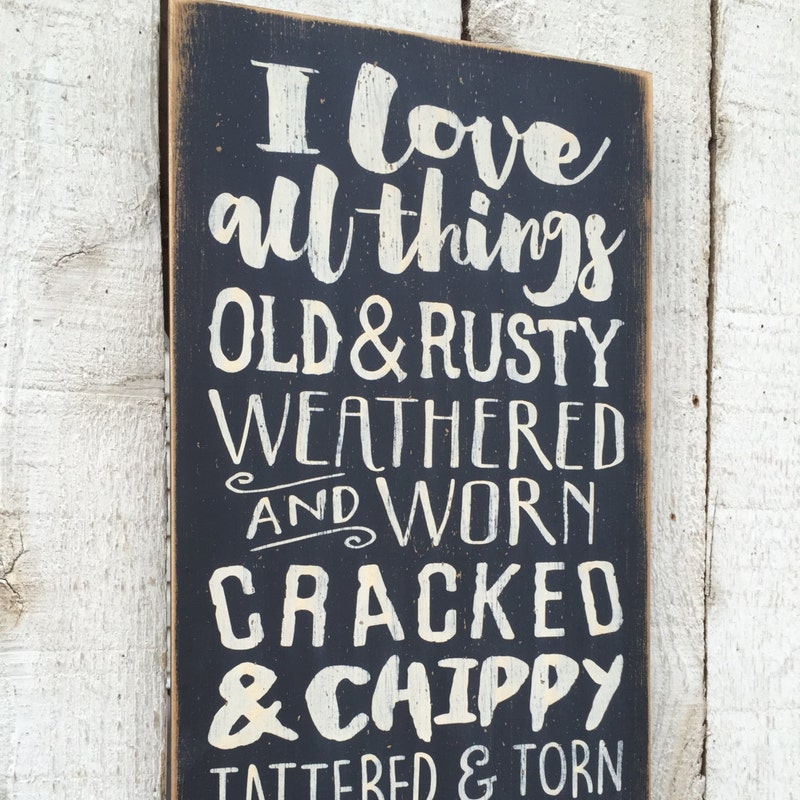 I love
all things
OLD & RUSTY
WEATHERED
AND WORN
CRACKED
& CHIPPY
TATTERED & TORN